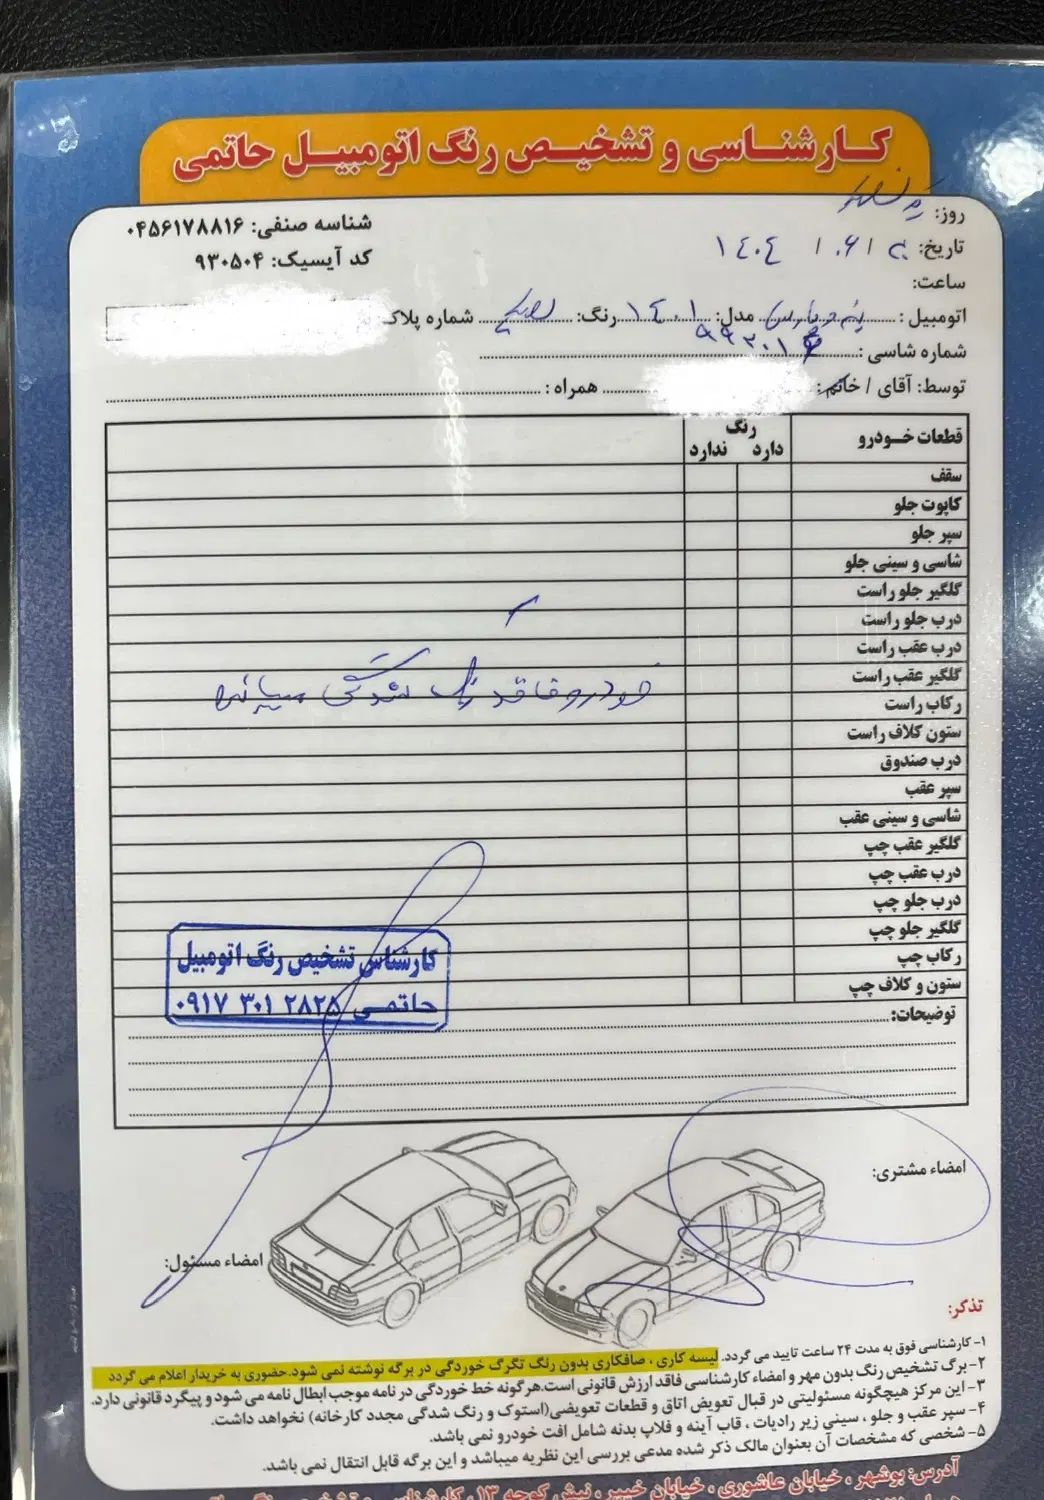 کارشناسی و تشخیص رنگ اتومبیل حاتمی
روز: پنجشنبه
شناسه صنفی: ۰۴۵۶۱۷۸۸۱۶
تاریخ: ۱۴۰۴
کد آیسیک: ۹۳۰۵۰۴
ساعت:
اتومبیل: پژو پارس مدل: ۱۴۰۱ رنگ: سفید شماره پلاک
شماره شاسی:
توسط: آقای / خانم: همراه:
قطعات خودرو رنگ
دارد ندارد
سقف
کاپوت جلو
سپر جلو
شاسی و سینی جلو
گلگیر جلو راست
درب جلو راست
درب عقب راست
گلگیر عقب راست
خودرو فاقد رنگ شدگی میباشد
رکاب راست
ستون کلاف راست
درب صندوق
سپر عقب
شاسی و سینی عقب
گلگیر عقب چپ
درب عقب چپ
درب جلو چپ
گلگیر جلو چپ
رکاب چپ
ستون و کلاف چپ
کارشناس تشخیص رنگ اتومبیل
حاتمی ۰۹۱۷ ۳۰۱ ۲۸۲۵
توضیحات:
امضاء مشتری:
امضاء مسئول:
تذکر:
۱- کارشناسی فوق به مدت ۲۴ ساعت تایید می گردد. لیسه کاری، صافکاری بدون رنگ تگرگ خوردگی در برگه نوشته نمی شود. حضوری به خریدار اعلام می گردد
۲- برگ تشخیص رنگ بدون مهر و امضاء کارشناسی فاقد ارزش قانونی است. هرگونه خط خوردگی در نامه موجب ابطال نامه می شود و پیگرد قانونی دارد.
۳- این مرکز هیچگونه مسئولیتی در قبال تعویض اتاق و قطعات تعویضی (استوک و رنگ شدگی مجدد کارخانه) نخواهد داشت.
۴- سپر عقب و جلو، سینی زیر رادیات، قاب آینه و فلاپ بدنه شامل افت خودرو نمی باشد.
۵- شخصی که مشخصات آن بعنوان مالک ذکر شده مدعی بررسی این نظریه میباشد و این برگه قابل انتقال نمی باشد.
آدرس: بوشهر، خیابان عاشوری، خیابان خیبر، نبش کوچه ۱۳، کارشناسی و تشخیص رنگ